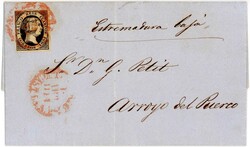 Estremadura baja
Sr. Dn. G. Petit
Arroyo del Puerco